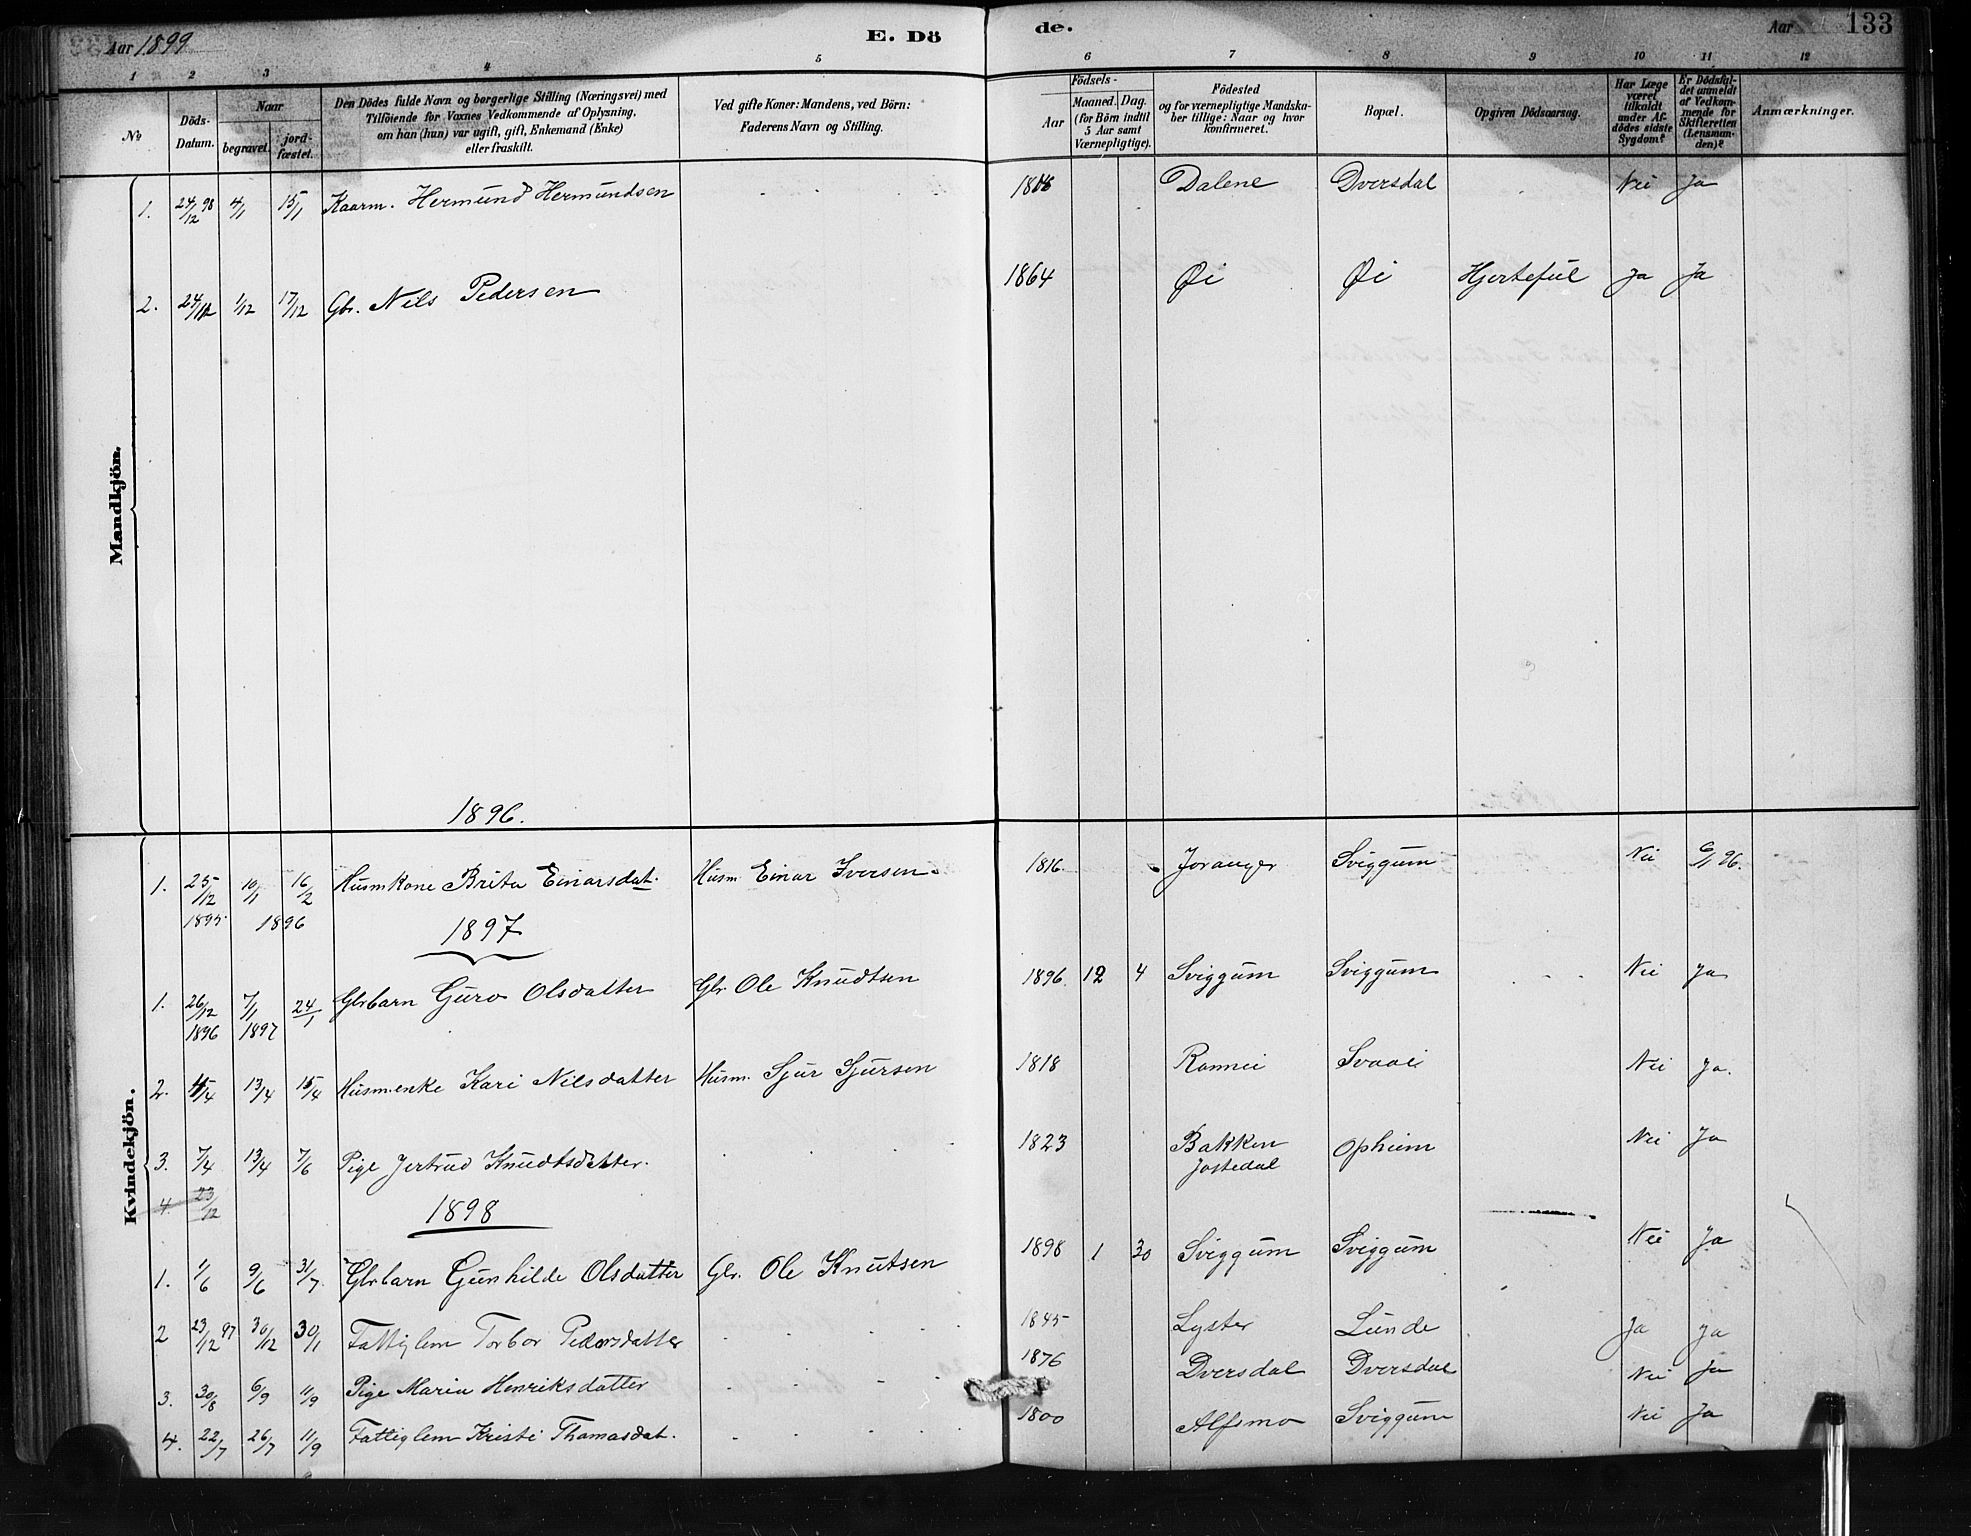 Aar 1899 E. Dö de. Aar 133
1 2 3 4 5 6 7 8 9 10 11 12
No
Döds-Datum.
Naar
begravet. jord-fæstet.
Den Dödes fulde Navn og borgerlige Stilling (Næringsvei) med
Tilföiende for Voxnes Vedkommende af Oplysning,
om han (hun) var ugift, gift, Enkemand (Enke)
eller fraskilt.
Ved gifte Koner: Mandens, ved Börn:
Faderens Navn og Stilling.
Födsels-
Aar Maaned. Dag.
(for Börn indtil
5 Aar samt
Værnepligtige).
Födested
og for værnepligtige Mandska-
ber tillige: Naar og hvor
konfirmeret.
Bopæl.
Opgiven Dödsaarsag.
Har Læge
været
tilkaldt
under Af-
dödes sidste
Sygdom?
Er Dödsfal-
det anmeldt
af Vedkom-
mende for
Skifteretten
(Lensman-
den)?
Anmærkninger.
Mandkjön.
1. 24/12 98 4/1 15/1 Kaarm. Hermund Hermundsen Dalene Dversdal Nei Ja
2. 1/12 17/12 Gbr. Nils Pedersen 1864 Øi Øi Hjertefeil Ja Ja
1896.
Kvindekjön.
1. 25/12 10/1 16/2 Husmkone Brita Einarsdat. Husm. Einar Iversen 1816. Joranger Sviggum Nei 6/1 96.
1895 1896
1897
1. 26/12 7/1 24/1 Gbrbarn Guro Olsdatter Gbr. Ole Knudtsen 1896. 12 4 Sviggum Sviggum Nei Ja
1896 1897
2. 13/4 15/4 Husmenke Kari Nilsdatter Husm. Sjur Sjursen 1818 Rønnei Svaali Nei Ja.
3. 7/4 13/4 7/6 Pige Jertrud Knudtsdatter. 1823 Bakken Jostedal Opheim Nei Ja
4. 23/12
1898
1. 1/6 9/6 31/7 Gbrbarn Gunhilde Olsdatter Gbr. Ole Knutsen 1898 1 30 Sviggum Sviggum Nei Ja
2 23/12 97 30/12 30/1 Fattiglem Torbor Pedersdatter 1845 Lyster Lunde Ja Ja
3. 30/8 6/9 11/9 Pige Maria Henriksdatter 1876 Dversdal Dversdal Nei Ja
4. 22/7 26/7 11/9 Fattiglem Kristi Thomasdat. 1800 Alsmo Sviggum Nei Ja